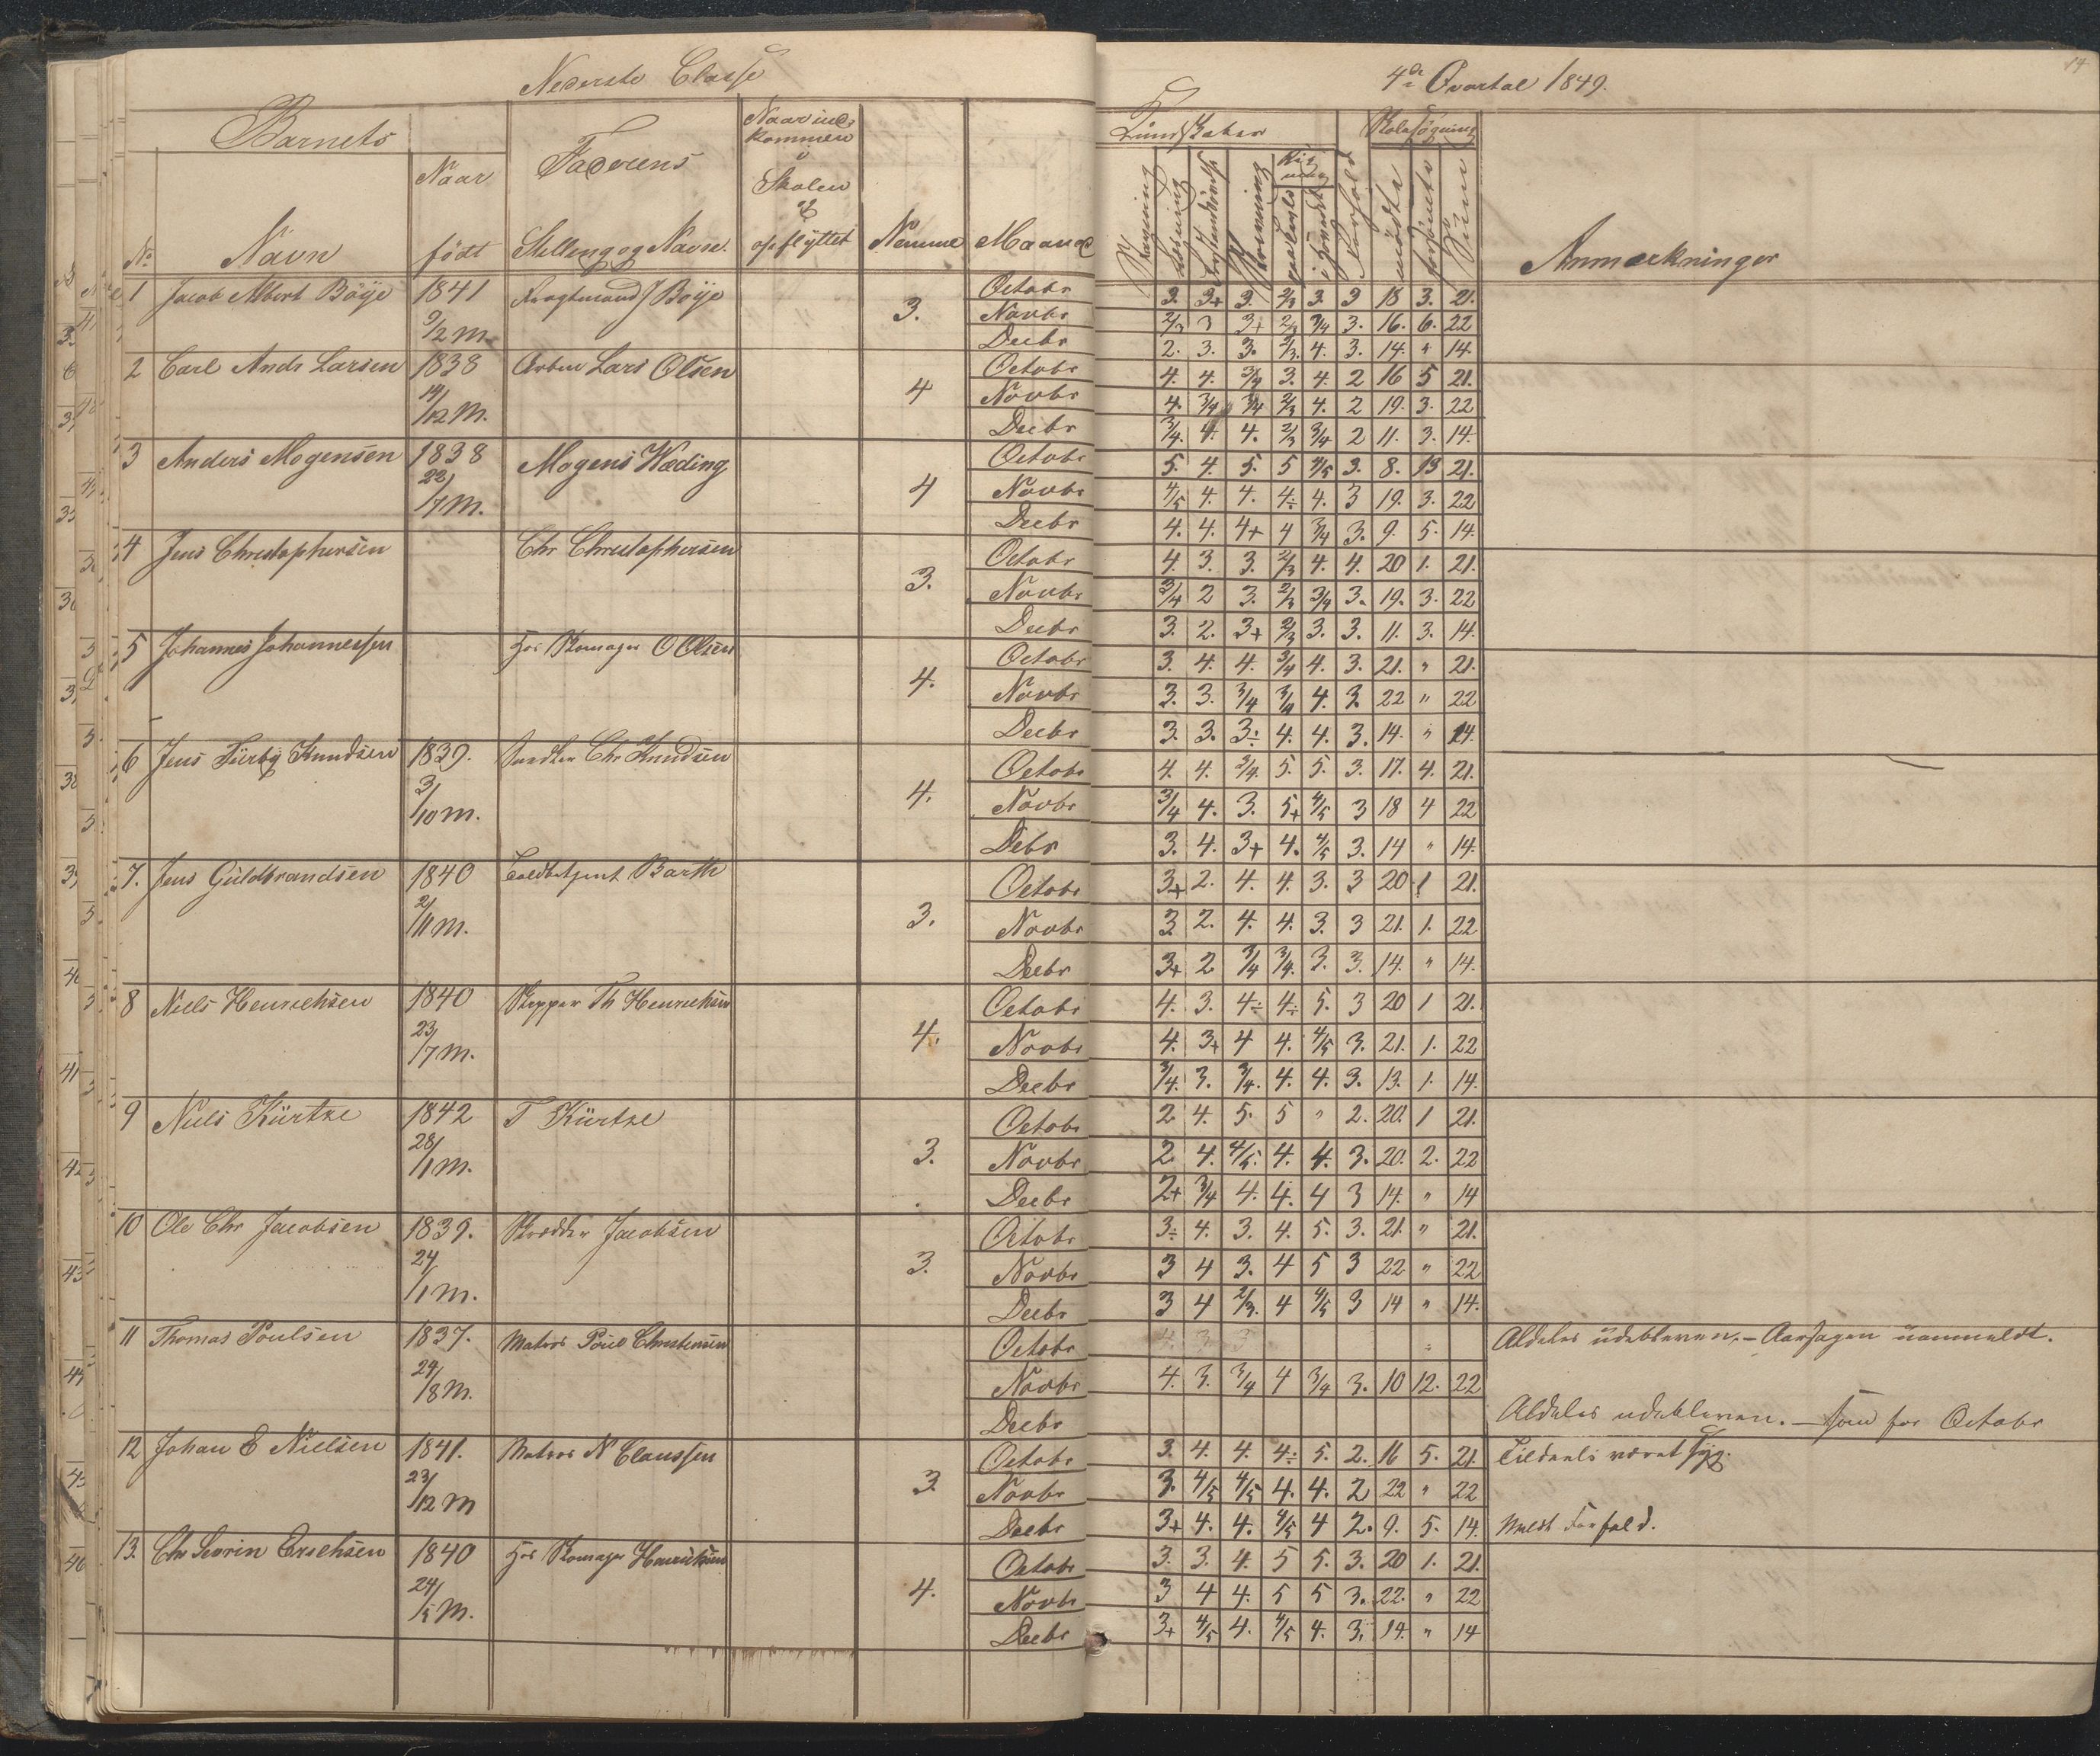 Nederste Classe
4de Qvartal 1849.
14
Barnets
Naar
Faderens
Naar ind-
kommen
i
Skolen
og
opflyttet
Kundskaber
Skolesøgning
No
Navn
født
Stilling og Navn.
Nemme
Maaned
Læsning
Skrivning
Forhold
mödte
forsömte
Süm
Anmærkninger
1 Jacob Albert Böÿe 1841 Fragtmand J Böÿe Octobr 3. 3+ 3. 2/3 3. 3 18 3. 21.
9/2 m. 3. Novbr 2/3 3 3+ 2/3 3/4 3. 16. 6. 22
Decbr 2. 3. 3. 2/3. 4. 3. 14. " 14.
2 Carl Andr Larsen 1838 Arbm Lars Olsen Octobr 4. 4. 3/4 3. 4. 2 16 5 21.
14/12 M. 4 Novbr 4. 3/4 3/4 2/3 4. 2 19. 3. 22
Decbr 3/4. 4. 4. 2/3 3/4 2 11. 3. 14.
3 Anders Mogensen 1838 Mogens Wæding Octobr 5. 4. 5. 5 4/5 3. 8. 13 21.
22/7 M. 4 Novbr 4/5 4. 4. 4÷ 4. 3 19. 3. 22
Decbr 4. 4. 4+ 4 3/4 3. 9. 5. 14.
4 Jens Christophersen Chr Christophersen Octobr 4. 3. 3. 2/3 4. 4. 20 1. 21.
3. Novbr 3/4 2 3. 2/3 3/4 3. 19. 3. 22
Decbr 3. 2. 3+ 2/3 3. 3. 11. 3. 14.
5 Johannes Johannessen Hos Skomager O Olsen Octobr 3. 4. 4. 3/4 4. 3. 21. " 21.
4. Novbr 3. 3. 3/4 3/4 4. 3. 22 " 22
Decbr 3. 3. 3÷ 4. 4. 3. 14. " 14.
6 Jens Türbÿ Knudsen 1839. Snedker Chr Knudsen Octobr 4. 4. 3/4. 5. 5. 3. 17. 4. 21.
3/10 m. 4. Novbr 3/4 4. 3. 5+ 4/5 3 18 4 22
Debr 3. 4. 3+ 4. 4/5 3. 14 " 14.
7. Jens Güldbrandsen 1840 Toldbetjent Barth Octobr 3+ 2. 4. 4. 3. 3 20 1 21.
2/11 m. 3. Novbr 3 2. 4. 4. 3. 3 21. 1. 22
Decbr 3+ 2 3/4 3/4. 3. 3. 14. " 14.
8 Niels Henrichsen 1840 Skipper Th Henrichsen Octobr 4. 3. 4÷ 4÷ 5. 3 20 1 21.
23/7 m. 4. Novbr 4. 3+ 4 4. 4/5 3. 21. 1. 22
Decbr 3/4. 3. 3/4. 4. 4. 3. 13. 1. 14.
9 Niels Kürtze 1842 T Kürtze Octobr 2 4. 5. 5 " 2. 20. 1 21.
28/1 m. 3. Novbr 2. 4. 4/5. 4. 4. 3. 20. 2. 22
Decbr 2+ 3/4 4. 4. 4 3 14. " 14
10 Ole Chr Jacobsen 1839. Skrædder Jacobsen Octobr 3÷ 4. 3. 4. 5. 3. 21. " 21.
24/1 m. 3. Novbr 3 4 3. 4 5 3 22 " 22
Decbr 3 4 2/3. 4 4/5 3 14 " 14.
11 Thomas Poülsen 1837. Matros Poül Christensen Octobr Aldeles üdebleven. - Aarsagen üanmeldt.
29/8 M. Novbr 4. 3. 3/4 4 3/4 3. 10 12. 22
Decbr Aldeles udebleven. - som for Octobr
12 Johan E Nielsen 1841. Matros N Claussen Octobr 3. 4. 4. 4÷ 5. 2. 16 5. 21. Tildeels været syg.
23/12 m 3. Novbr 3. 4/5 4/5 4. 4. 2 22 " 22
Decbr 3+ 4. 4. 4/5 4 2. 9. 5. 14. Meldt Forfald.
13. Chr Severin Erichsen 1840 Hos Skomager Henrichsen Octobr 3. 3. 4. 5 5. 3. 20 1. 21.
24/5 M. 4. Novbr 3 4 4. 5 5 3. 22. " 22
Decbr 3+ 4/5 4. 4/5 4. 3. 14. " 14